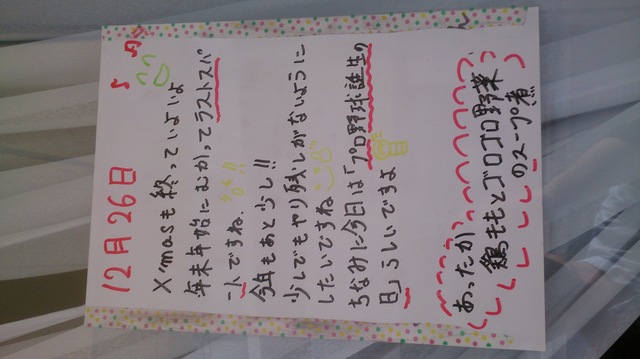 12月26日
X'masも終っていよいよ
年末年始にむかってラストスパ
ートですね、
今年もあと少し!!
少しでもやり残しがないように
したいですね
ちなみに今日は「プロ野球誕生の
日」らしいですよ
あったか
鶏ももとゴロゴロ野菜
のスープ煮